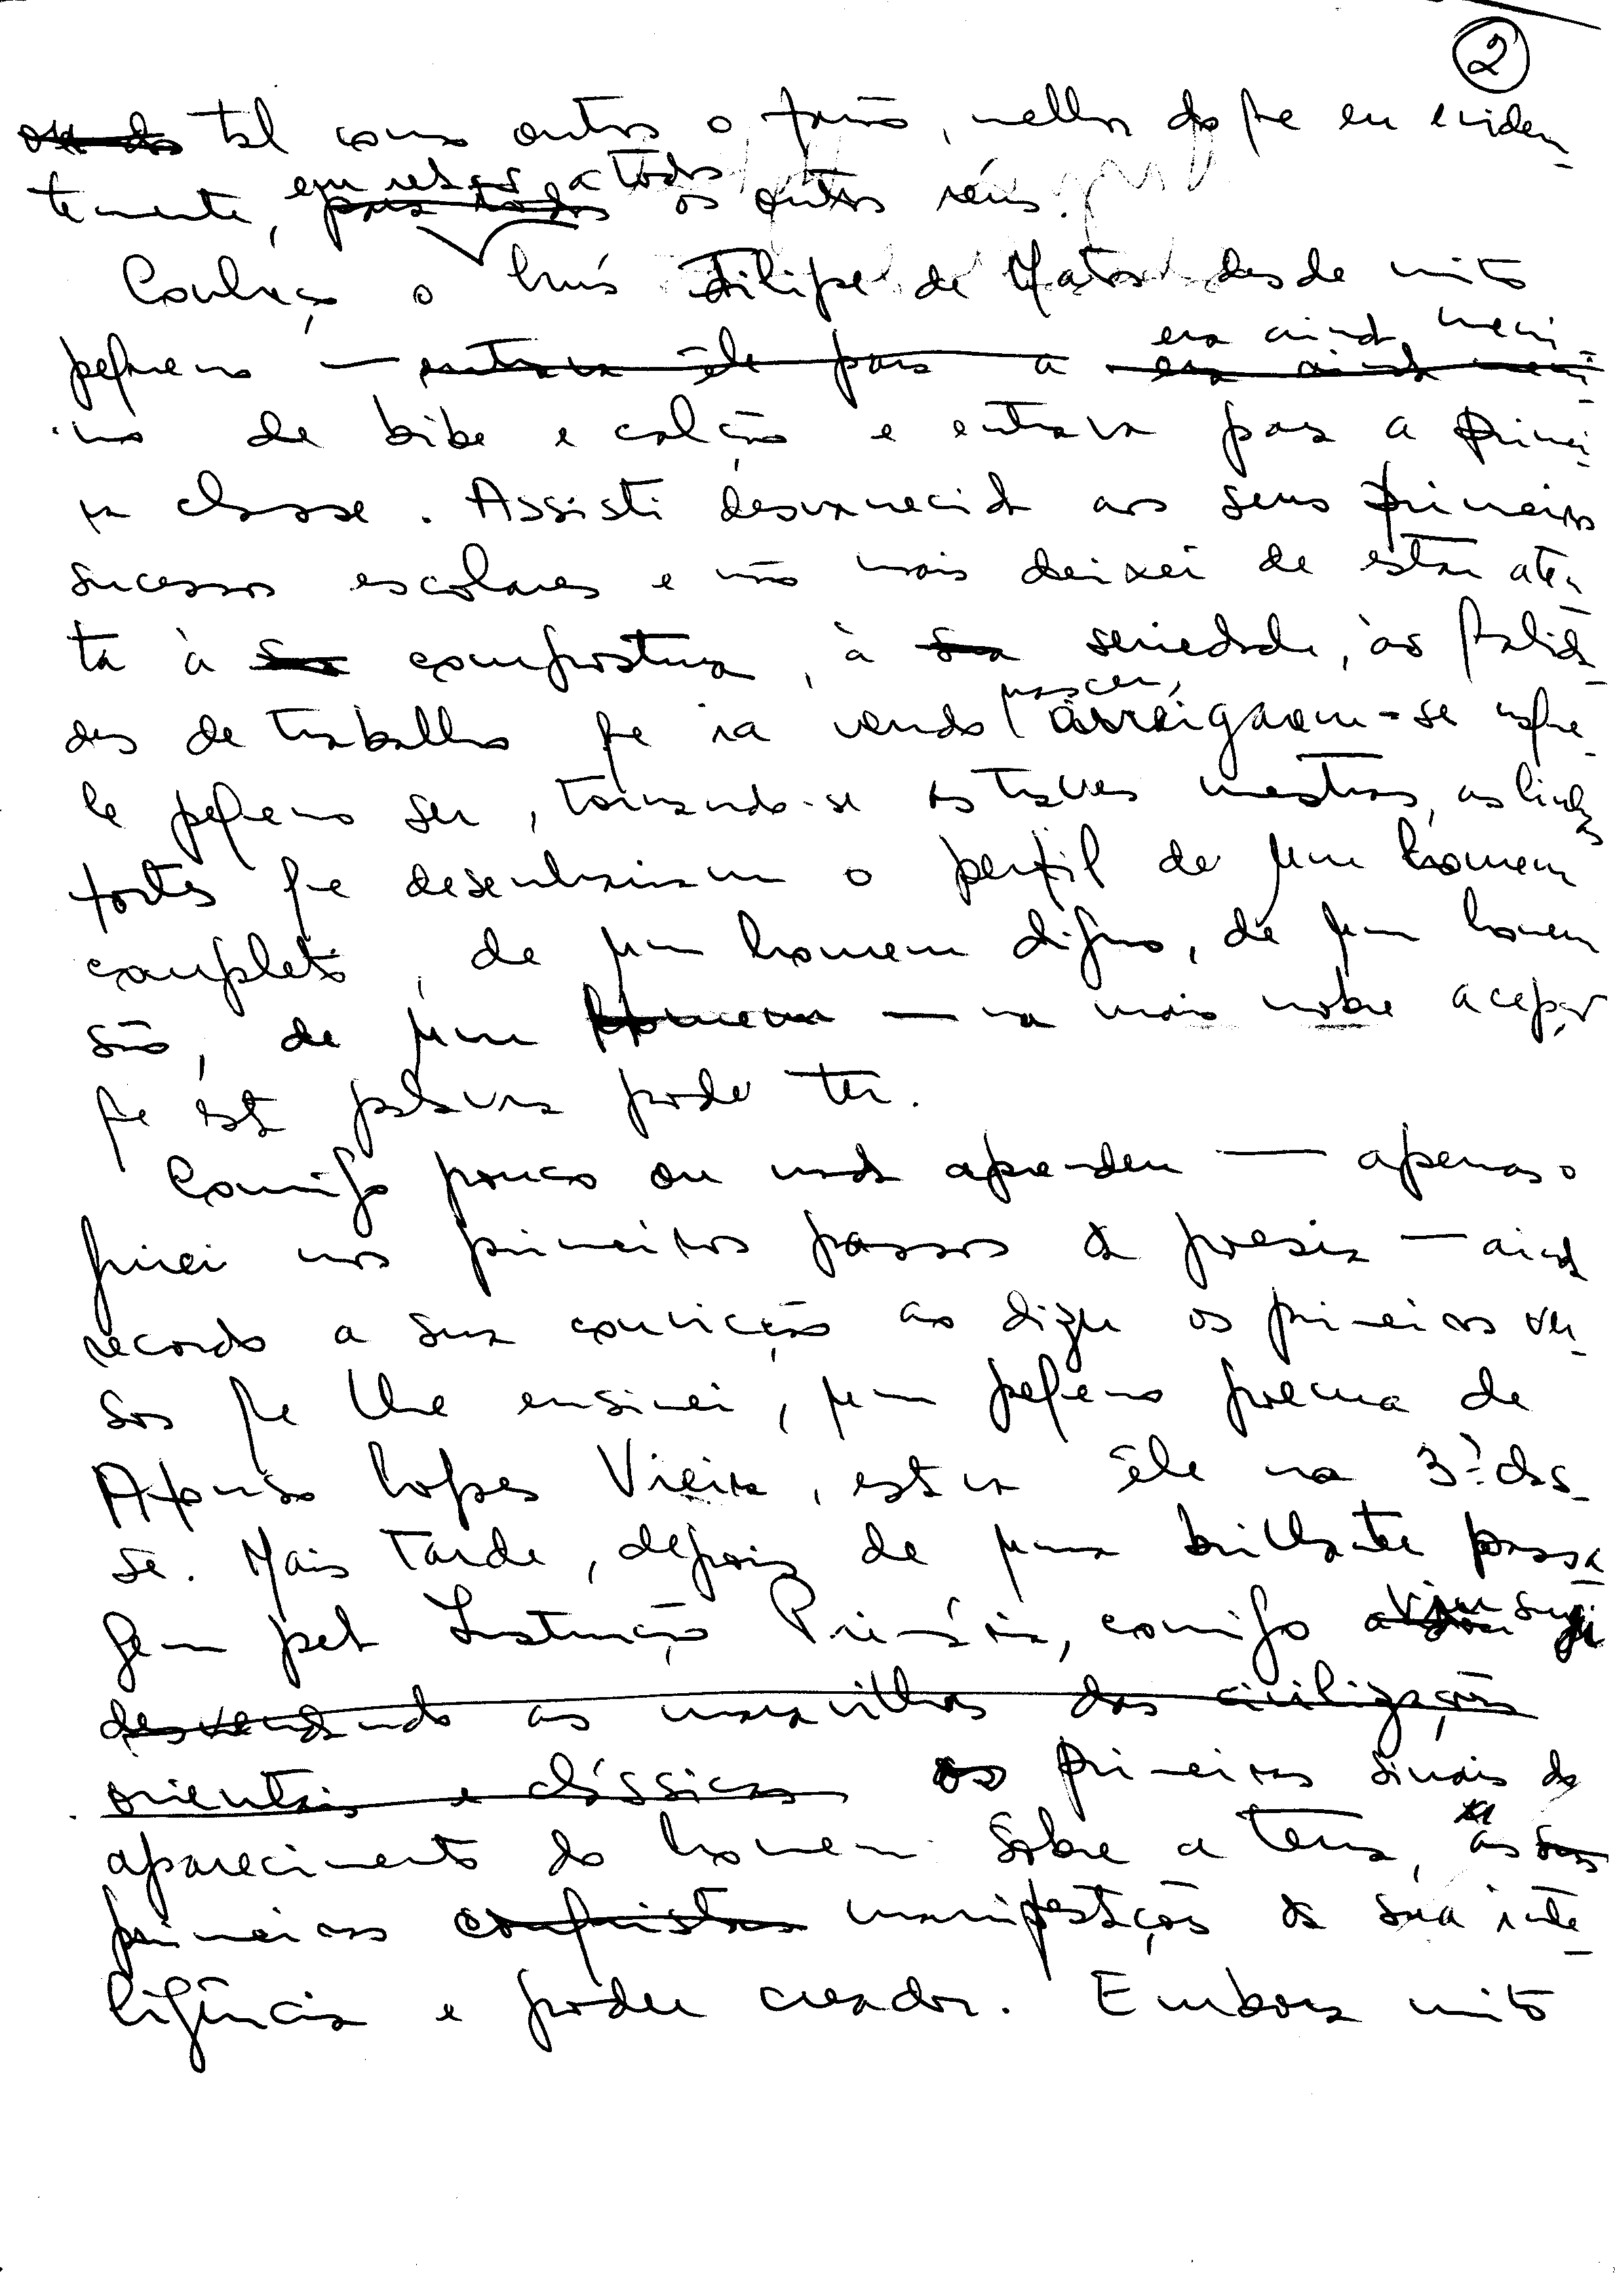 2
tal como outros o farão, melhor do que eu eviden-
temente, em relação a todos
para todos os outros réus.
Conheço o Luís Filipe de Matos desde muito
pequeno — entrava êle para a era ainda meni-
era ainda meni-
no de bibe e calção e entrava para a primei-
ra classe. Assisti desvanecida aos seus primeiros
sucessos escolares e não mais deixei de estar aten-
ta à sua compostura, à sua seriedade, às qualida-
des de trabalho que ia vendo nascer, arreigarem-se naque-
le pequeno ser, tornando-se as traves mestras, as linhas
fortes que desenhariam o perfil de um homem
completo, de um homem digno, de um homem
são, de um homem — na mais nobre acepção
que esta palavra pode ter.
Comigo pouco ou nada aprendeu — apenas o
guiei nos primeiros passos da poesia — ainda
recordo a sua convicção ao dizer os primeiros ver-
sos que lhe ensinei, um pequeno poema de
Afonso Lopes Vieira, estava êle na 3ª clas-
se. Mais tarde, depois de uma brilhante passa-
gem pela Instrução Primária, comigo viu surgir
desvendando as maravilhas das civilizações
orientais e clássicas os primeiros sinais do
aparecimento do homem sobre a terra, as suas
primeiras conquistas manifestações da sua inte-
ligência e poder creador. Embora muito